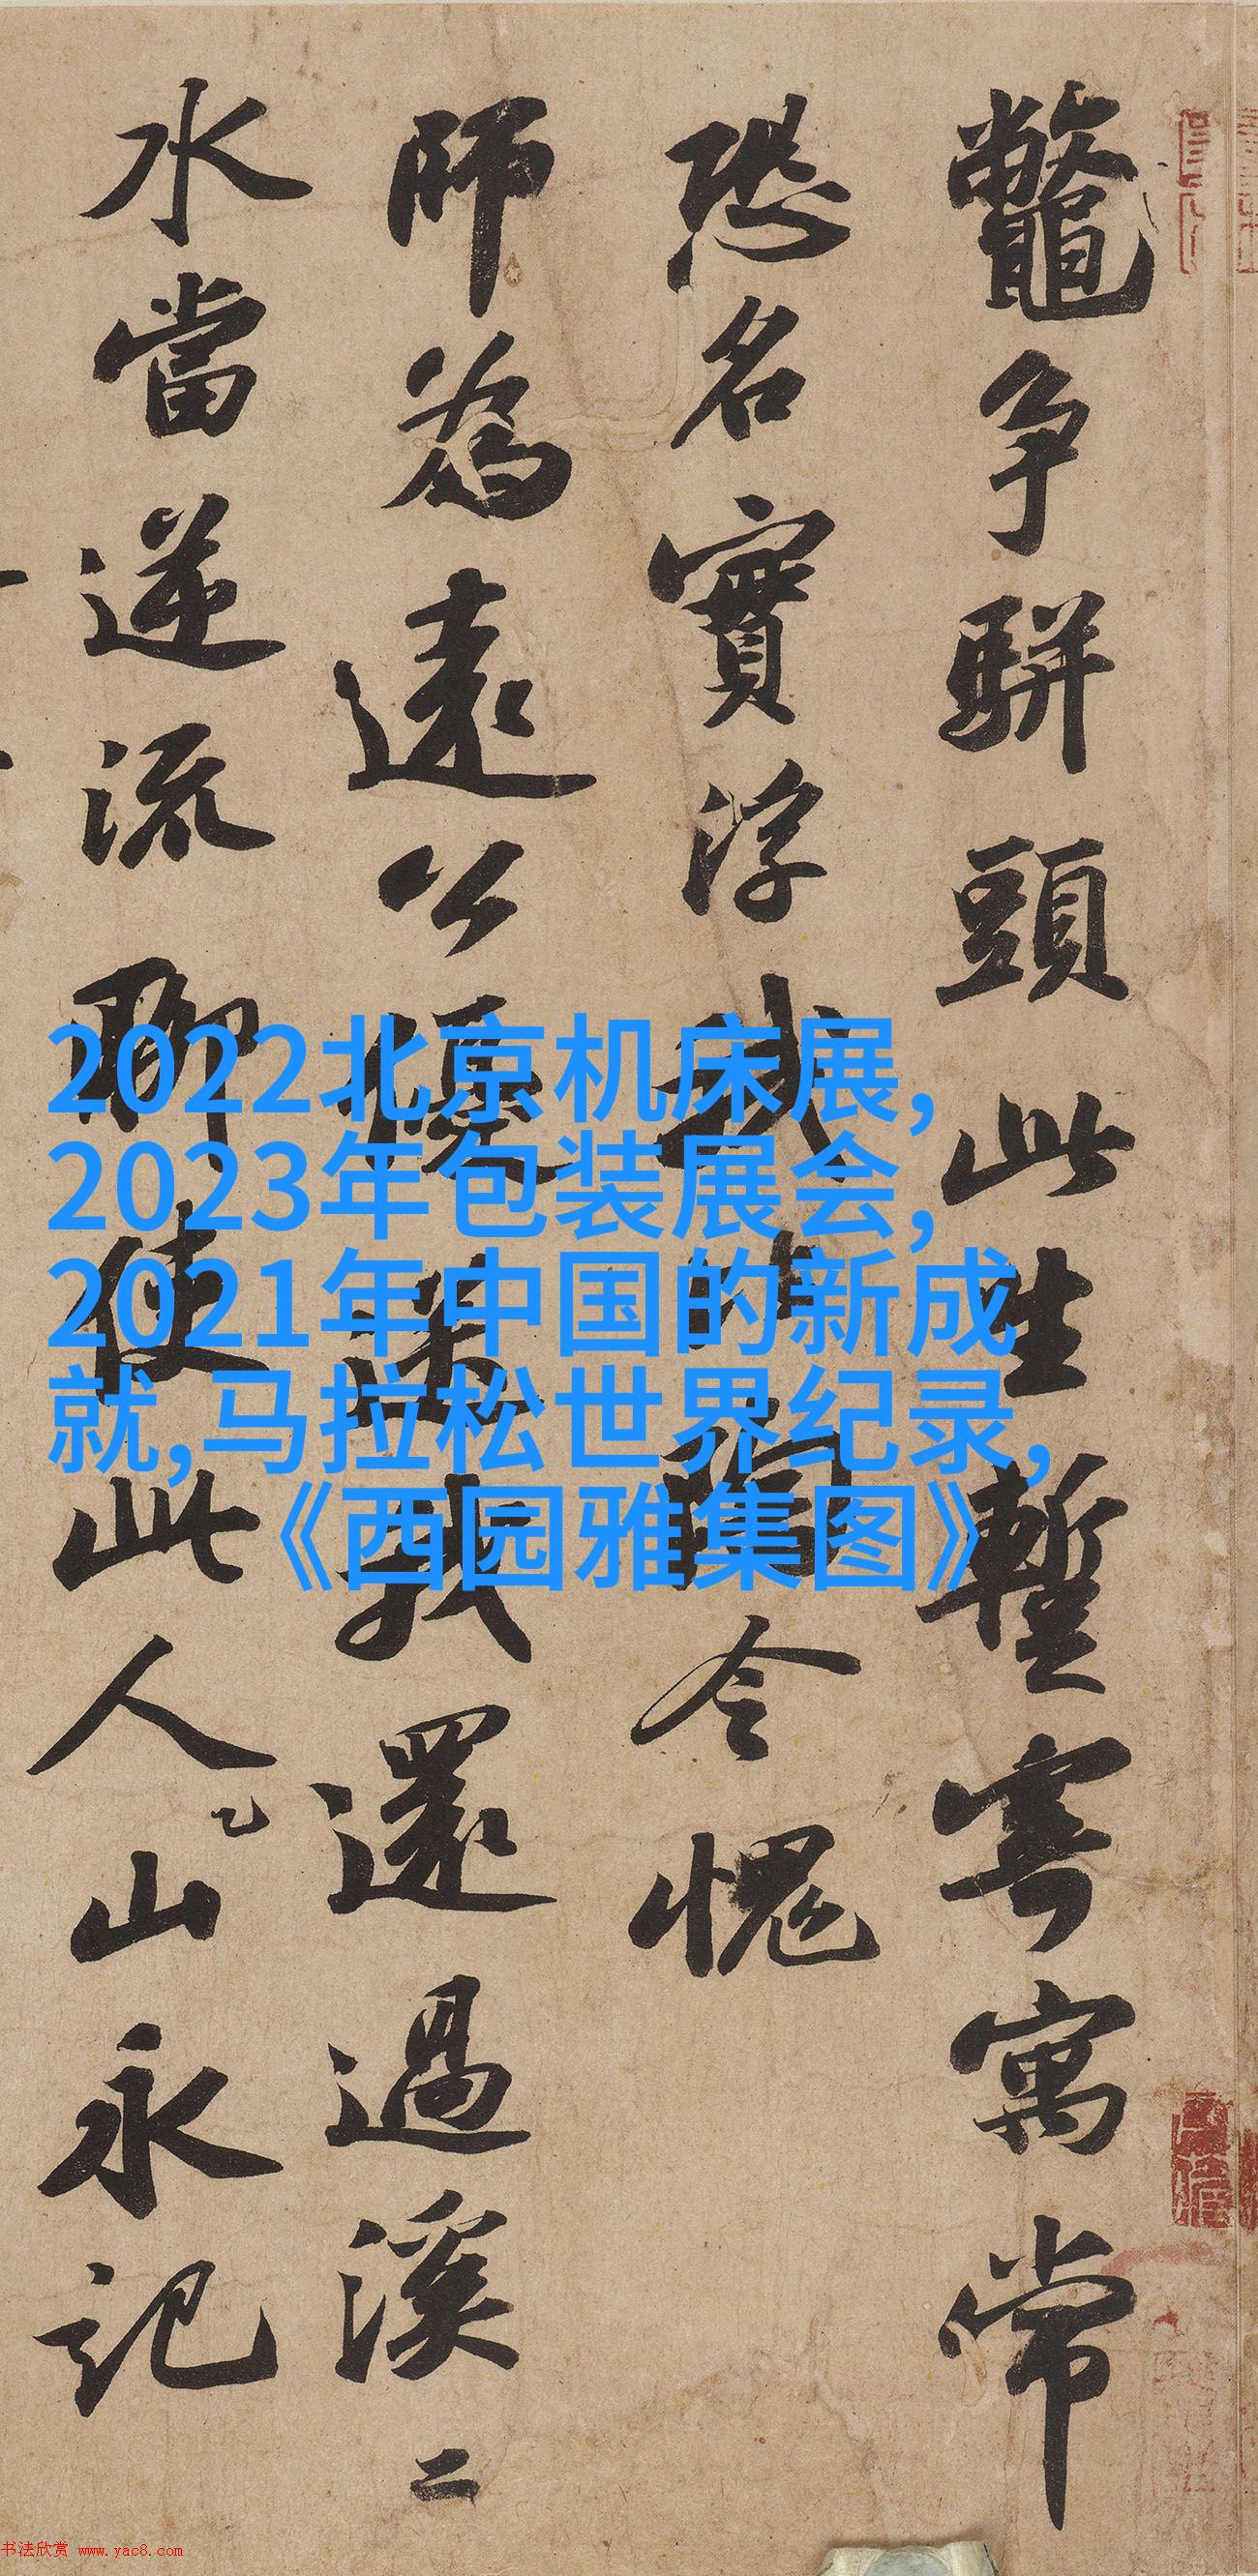 鼈争駢頭此生暫寄寓常
恐名實浮我比陶令愧
師為遠公優送我還過溪二
水當逆流聊使此人山永記
2022北京机床展,
2023年包装展会,
2021年中国的新成
就,马拉松世界纪录,
《西园雅集图》
书法欣赏 www.yac8.com